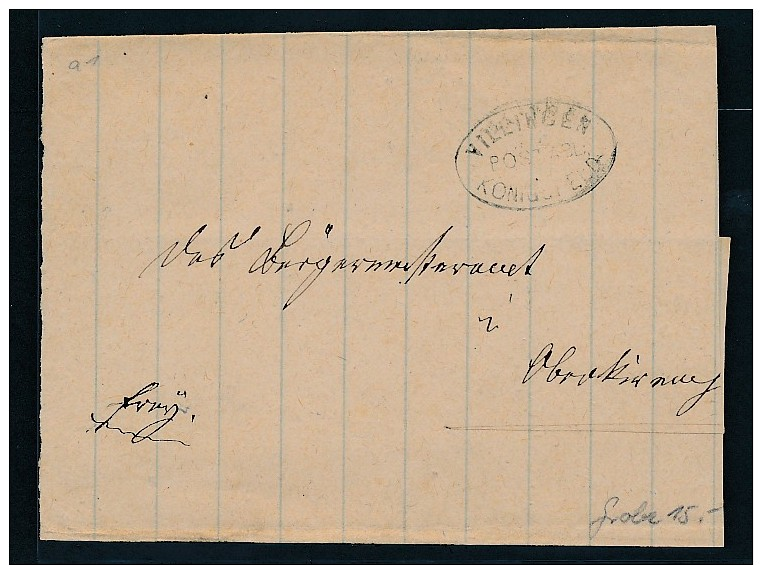 a1
VILLINGEN
POSTABL.
KÖNIGSFELD
Das Bürgermeisteramt
i
Oberkirnach
frey.
Grobe 15.-